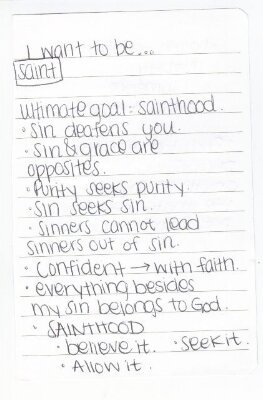 I want to be...
saint
ultimate goal: sainthood.
· sin deafens you.
· sin & grace are
opposites.
· Purity seeks purity
· sin seeks sin.
· sinners cannot lead
sinners out of sin.
· Confident → with faith.
· everything besides
my sin belongs to God.
· SAINTHOOD
· believe it. · seek it.
· Allow it.